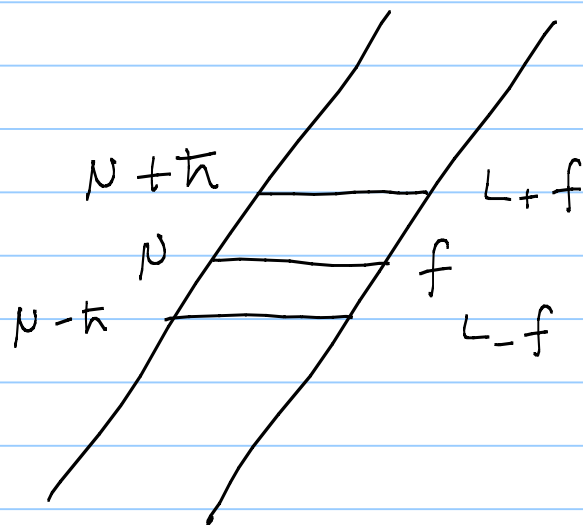 μ + ħ L₊ f
μ f
μ - ħ L₋ f